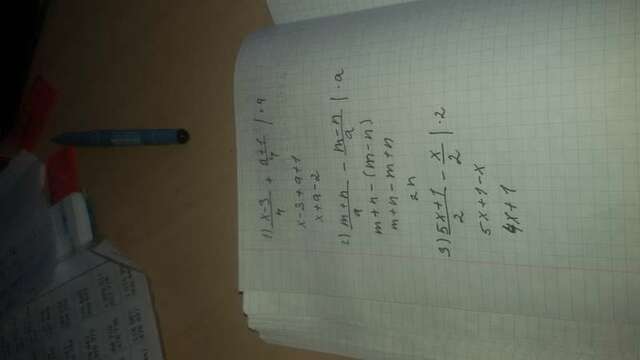 1) x-3/4 + a+1/4 | ·4
x-3+a+1
x+a-2
2) m+n/a - m-n/a | ·a
m+n-(m-n)
m+n-m+n
2n
3) 5x+1/2 - x/2 | ·2
5x+1-x
4x+1